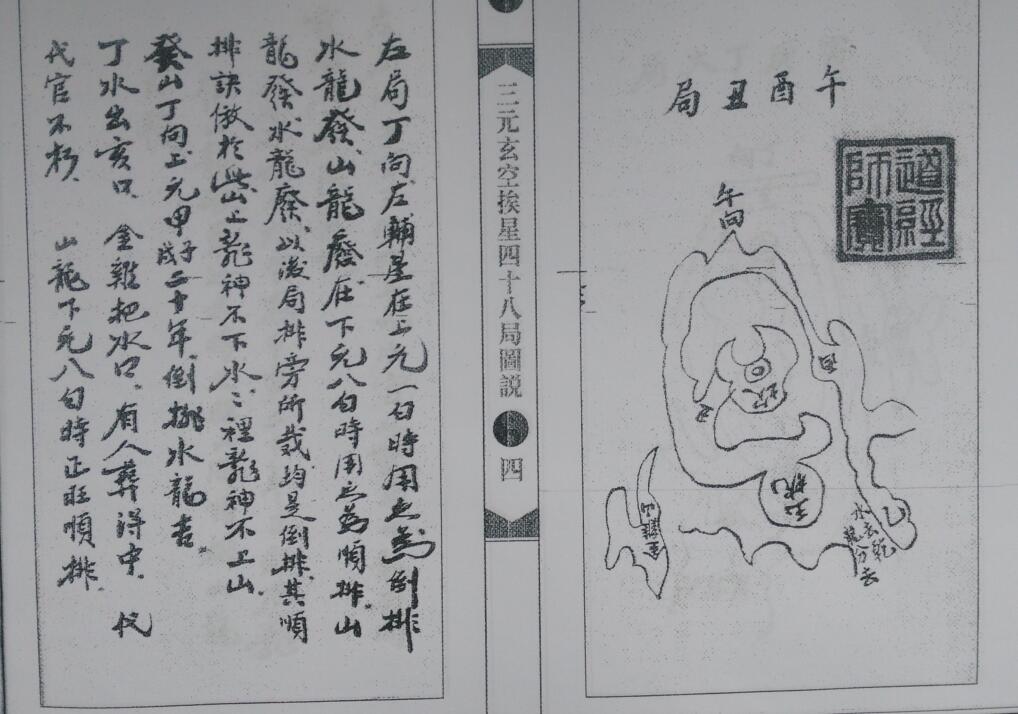 午酉丑局
道經師寶
午向
金雞山
水去乾
三元玄空挨星四十八局圖説
四
左局丁向、左輔星在上元一白時用之為倒排
水龍發、山龍廢、在下元八白時用之為順排、山
龍發水龍廢、以後局排旁所載均是倒排、其順
排訣倣於此、山上龍神不下水、〻裡龍神不上山、
癸山丁向上元甲子戌二十年、倒排水龍書。
丁水出亥口、金雞把水口、有人葬得中、代
代官不朽、山龍下元八白時正旺順排、